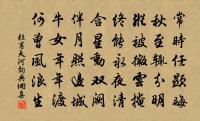 常時任顯晦
秋至轉分明
縱被微雲掩
終能永夜清
含星動雙闕
伴月照邊城
牛女年年渡
何曾風浪生
杜甫天河詞典網集